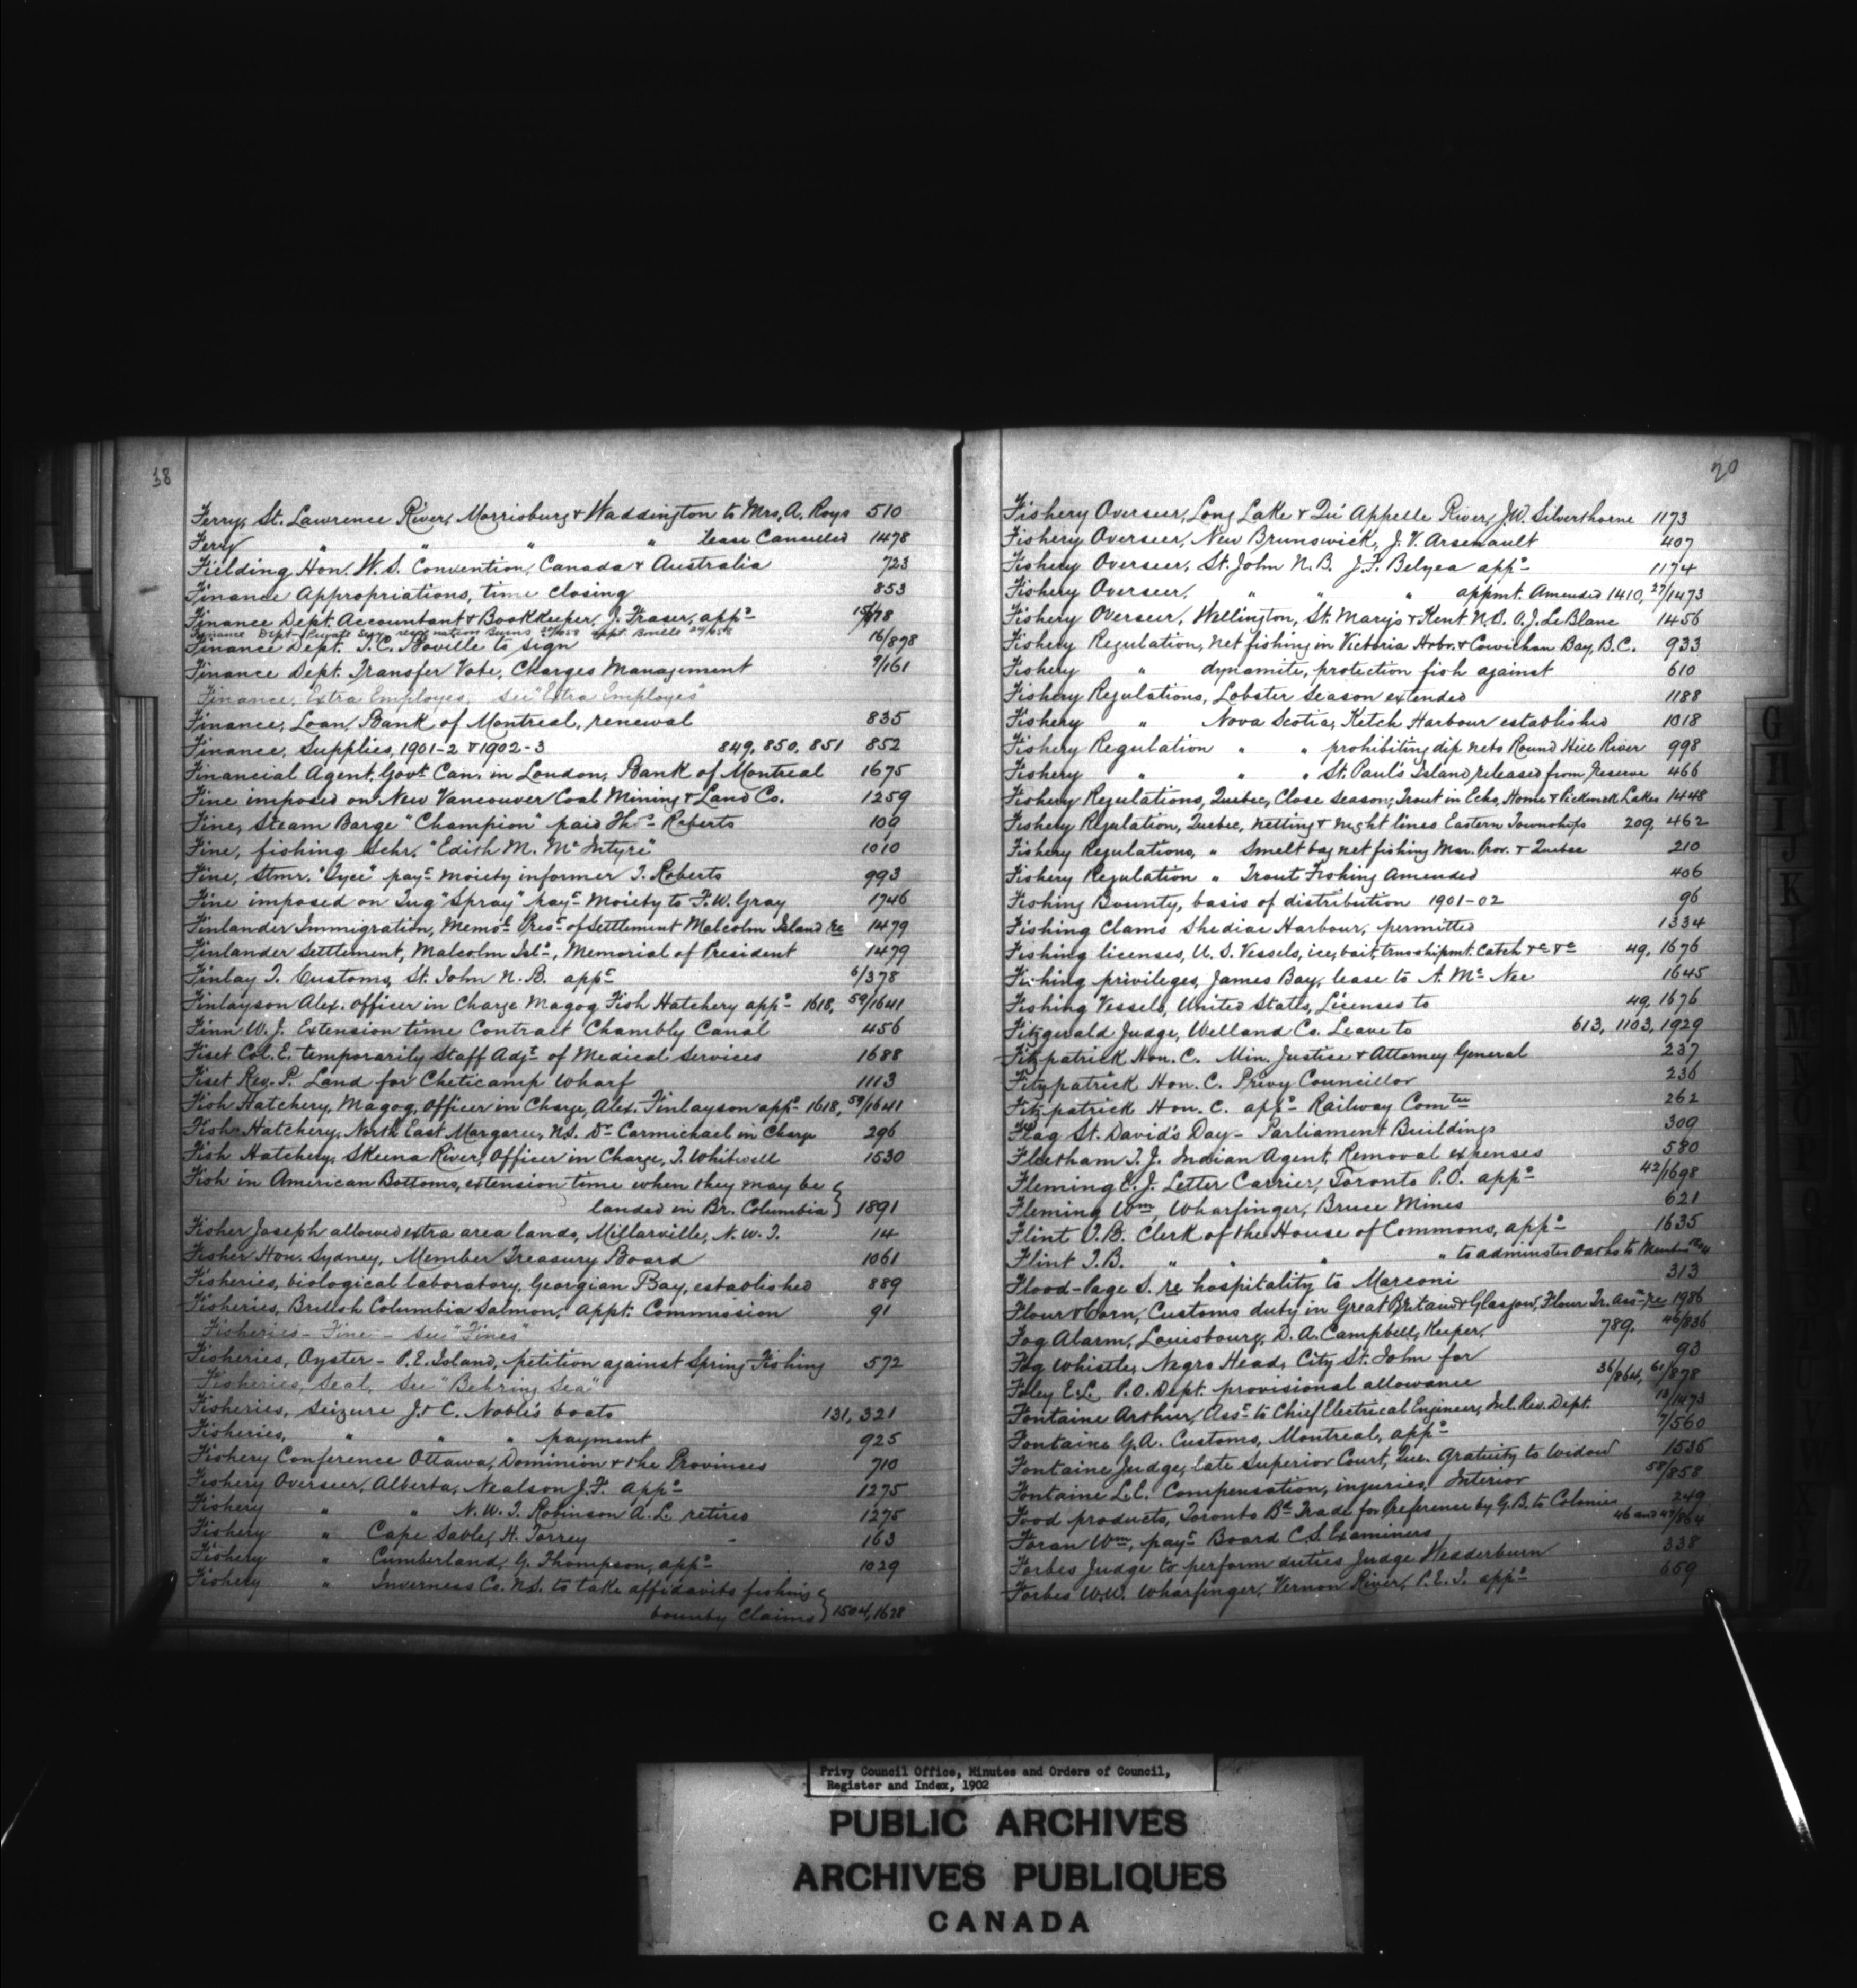 38
Ferry, St. Lawrence River, Morrisburg & Waddington to Mrs. A. Roys 510
Ferry " " " " Lease Cancelled 1478
Fielding Hon. W. S. Convention, Canada & Australia 723
Finance Appropriations, time closing 853
Finance Dept. Accountant & Bookkeeper, J. Fraser, appt
Finance Dept. Private Secy
Finance Dept. T. C. Boville to sign 16/898
Finance Dept. Transfer Vote, Charges Management 9/161
Finance, Extra Employes, see "Extra Employes"
Finance, Loan, Bank of Montreal, renewal 835
Finance, Supplies, 1901-2 & 1902-3 849, 850, 851 852
Financial Agent, Govt. Can. in London, Bank of Montreal 1675
Fine imposed on New Vancouver Coal Mining & Land Co. 1259
Fine, Steam Barge "Champion" paid Thos Roberts 100
Fine, fishing Schr. "Edith M. McIntyre" 1010
Fine, Stmr. "Tyee" payt moiety informer T. Roberts 993
Fine imposed on Tug "Spray" payt moiety to F. W. Gray 1746
Finlander Immigration, Memol Prest of Settlement Malcolm Island re 1479
Finlander Settlement, Malcolm Isld, Memorial of President 1479
Finlay T. Customs, St. John N.B. appt 6/378
Finlayson Alex. Officer in Charge Magog Fish Hatchery appt 1618, 59/1641
Finn W. J. Extension time Contract Chambly Canal 456
Fiset Col. E. temporarily Staff Adjt of Medical Services 1688
Fiset Rev. P. Land for Cheticamp Wharf 1113
Fish Hatchery, Magog, Officer in Charge, Alex. Finlayson appt 1618, 59/1641
Fish Hatchery, North East Margaree, N.S. Dr Carmichael in Charge 296
Fish Hatchery, Skeena River, Officer in Charge, T. Whitwell 1530
Fish in American Bottoms, extension time when they may be
landed in Br. Columbia } 1891
Fisher Joseph allowed extra area lands, Millarville, N.W.T. 14
Fisher Hon. Sydney, Member Treasury Board 1061
Fisheries, biological laboratory, Georgian Bay, established 889
Fisheries, British Columbia Salmon, appt. Commission 91
Fisheries - Fine - see "Fines"
Fisheries, Oyster - P.E. Island, petition against Spring Fishing 572
Fisheries, Seal, see "Behring Sea"
Fisheries, Seizure J. & C. Noble's boats 131, 321
Fisheries, " " " payment 925
Fishery Conference Ottawa, Dominion & the Provinces 710
Fishery Overseer, Alberta, Nealson J. F. appt 1275
Fishery " " N.W.T. Robinson A. L. retires 1275
Fishery " Cape Sable, H. Torrey 163
Fishery " Cumberland, G. Thompson, appt 1029
Fishery " Inverness Co. N.S. to take affidavits fishing
bounty claims } 1504, 1628
20
Fishery Overseer, Long Lake & Qu'Appelle River, J. W. Silverthorne 1173
Fishery Overseer, New Brunswick, J. V. Arsenault 407
Fishery Overseer, St. John N.B. J. F. Belyea appt 1174
Fishery Overseer, " " " appmt. Amended 1410, 27/1473
Fishery Overseer, Wellington, St. Mary's & Kent N.B. O. J. LeBlanc 1456
Fishery Regulation, net fishing in Victoria Hrbr. & Cowichan Bay, B.C. 933
Fishery " dynamite, protection fish against 610
Fishery Regulations, Lobster Season extended 1188
Fishery " Nova Scotia, Ketch Harbour established 1018
Fishery Regulation " " prohibiting dip nets Round Hill River 998
Fishery " " " St. Paul's Island released from reserve 466
Fishery Regulations, Quebec, Close season; Trout in Echo, Home & Pickerel Lakes 1448
Fishery Regulation, Quebec, netting & night lines Eastern Townships 209, 462
Fishery Regulations, " Smelt bag net fishing Mar. Prov. & Quebec 210
Fishery Regulation " Trout Fishing Amended 406
Fishing Bounty, basis of distribution 1901-02 96
Fishing Clams Shediac Harbour, permitted 1334
Fishing licenses, U.S. Vessels, ice, bait, transhipmt. Catch &c &c 49, 1676
Fishing privileges, James Bay, lease to A. McNee 1645
Fishing Vessels, United States, Licenses to 49, 1676
Fitzgerald Judge, Welland Co. Leave to 613, 1103, 1929
Fitzpatrick Hon. C. Min. Justice & Attorney General 237
Fitzpatrick Hon. C. Privy Councillor 236
Fitzpatrick Hon. C. appt Railway Comtee 262
Flag St. David's Day - Parliament Buildings 309
Fleetham T. J. Indian Agent, Removal expenses 580
Fleming E. J. Letter Carrier, Toronto P.O. appt 42/1698
Fleming Wm. Wharfinger, Bruce Mines 621
Flint T. B. Clerk of the House of Commons, appt 1635
Flint T. B. " " " " to administer Oaths to Members
Flood-Page S. re hospitality to Marconi 313
Flour & Corn, Customs duty in Great Britain & Glasgow, Flour Tr. Assn re 1986
Fog Alarm, Louisbourg, D. A. Campbell, Keeper, 789, 46/836
Fog Whistle, Negro Head, City St. John for 93
Foley E. L. P.O. Dept. provisional allowance 36/864, 61/878
Fontaine Arthur, Asst to Chief Electrical Engineer, Inl. Rev. Dept. 13/1473
Fontaine G. A. Customs, Montreal, appt 7/560
Fontaine Judge, late Superior Court, Que. Gratuity to Widow 1535
Fontaine L. E. Compensation, injuries, Interior 58/858
Food products, Toronto Bd Trade for Preference by G.B. to Colonies 249
Foran Wm, payt Board C. S. Examiners 46 and 47/864
Forbes Judge to perform duties Judge Wedderburn 338
Forbes W. W. Wharfinger, Vernon River, P.E.I. appt 659
G
I
J
K
Privy Council Office, Minutes and Orders of Council,
Register and Index, 1902
PUBLIC ARCHIVES
ARCHIVES PUBLIQUES
CANADA